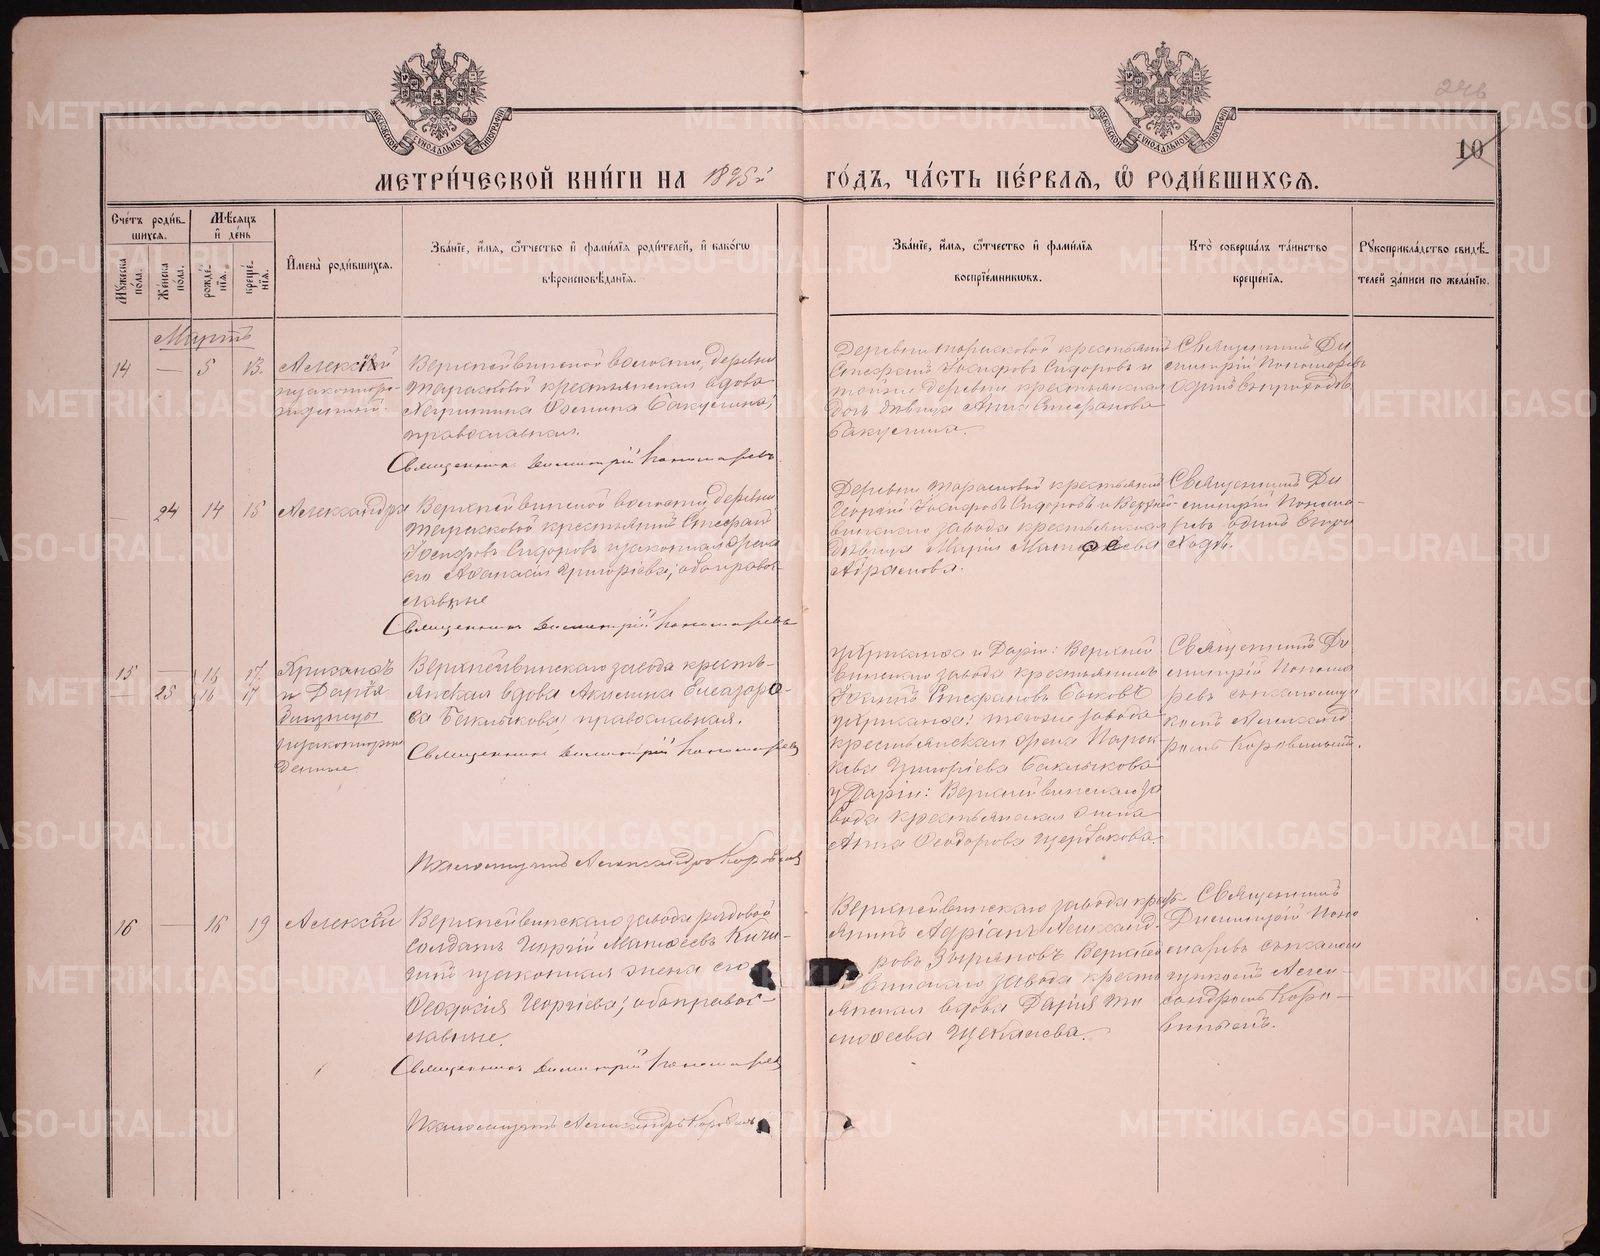 246
10
МЕТРИ́ЧЕСКОЙ КНИ́ГИ НА 1895й ГО́ДЪ, ЧА́СТЬ ПЕ́РВАЯ, Ѽ РОДИ́ВШИХСЯ.
Сче́тъ роди́в-
шихся.
Му́жеска по́ла.
Же́нска по́ла.
Мѣ́сяцъ и҆ де́нь
рожде́-
нїя.
креще́-
нїя.
И҆мена̀ роди́вшихся.
Зва́нїе, и҆́мя, ѻ҆́тчество и҆ фами́лїя роди́телей, и҆ како́гѡ
вѣроисповѣ́данїя.
Зва́нїе, и҆́мя, ѻ҆́тчество и҆ фами́лїя
воспрїе́мникѡвъ.
Кто̀ соверша́лъ та́инство
креще́нїя.
Рꙋкоприкла́дство свидѣ́-
телей за́писи по жела́нїю.
Мартъ
14 — 5 13.
Алексій
незаконно-
рожденный.
Верхнейвинской волости, деревни
Тарасковой крестьянская вдова
православная.
Священникъ Димитрій Пономаревъ
Деревни Тарасковой крестьянинъ
Стефанъ Іосифовъ Сидоровъ и
тойже деревни крестьянская
дочь девица Анна Стефанова
Бакунина.
Священникъ Ди
митрій Пономаревъ
— 24 14 15
Александра
Верхнейвинской волости, деревни
Тарасковой крестьянинъ Стефанъ
Іосифовъ Сидоровъ и законная жена
его Аѳанасія Григоріева; оба право-
славные
Священникъ Димитрій Пономаревъ
Деревни Тарасковой крестьянинъ
Георгій Іосифовъ Сидоровъ и Верхней-
винскаго завода крестьянская
девица Марія Матѳеева
Абрамова.
Священникъ Ди
митрій Понома-
ревъ
15 — 16 17.
— 25 16 17
Хрисанѳъ
и Дарія
Близнецы
незаконнорож
денные
Верхнейвинскаго завода кресть-
янская вдова Акилина Елеазаро-
ва Баклыкова, православная.
Священникъ Димитрій Пономаревъ
Псаломщикъ Александръ Коровинъ
у Хрисанѳа и Даріи: Верхней
винскаго завода крестьянинъ
Іоаннъ Стефановъ Быковъ
у Хрисанѳа: тогоже завода
крестьянская жена Парас-
кева Григоріева Баклыкова
у Даріи: Верхнейвинскаго за
вода крестьянская жена
Анна Ѳеодорова Щербакова.
Священникъ Ди
митрій Понома
ревъ съ псаломщи
комъ Александ
ромъ Коровинымъ.
16 — 16 19
Алексѣй
Верхнейвинскаго завода рядовой
солдатъ Георгій Матѳеевъ Кичи-
гинъ и законная жена его
Ѳеодосія Георгіева; оба правос-
лавные.
Священникъ Димитрій Пономаревъ
Псаломщикъ Александръ Коровинъ
Верхнейвинскаго завода кресть
янинъ Адріанъ Александ-
ровъ Зыряновъ Верхней
винскаго завода кресть
янская вдова Дарія Ти
моѳеева Щекалева.
Священникъ
Димитрій Поно
маревъ съ псалом
щикомъ Алек-
сандромъ Коро-
винымъ.